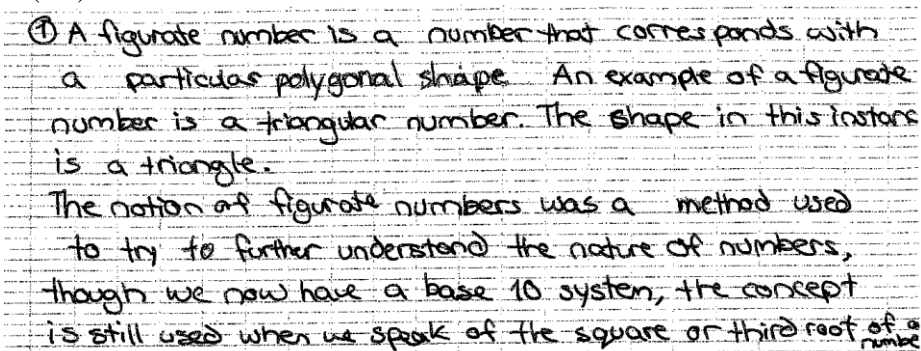 ① A figurate number is a number that corresponds with
a particular polygonal shape An example of a figurate
number is a triangular number. The shape in this instanc
is a triangle.
The notion of figurate numbers was a method used
to try to further understand the nature of numbers,
though we now have a base 10 system, the concept
is still used when we speak of the square or third root of a
number